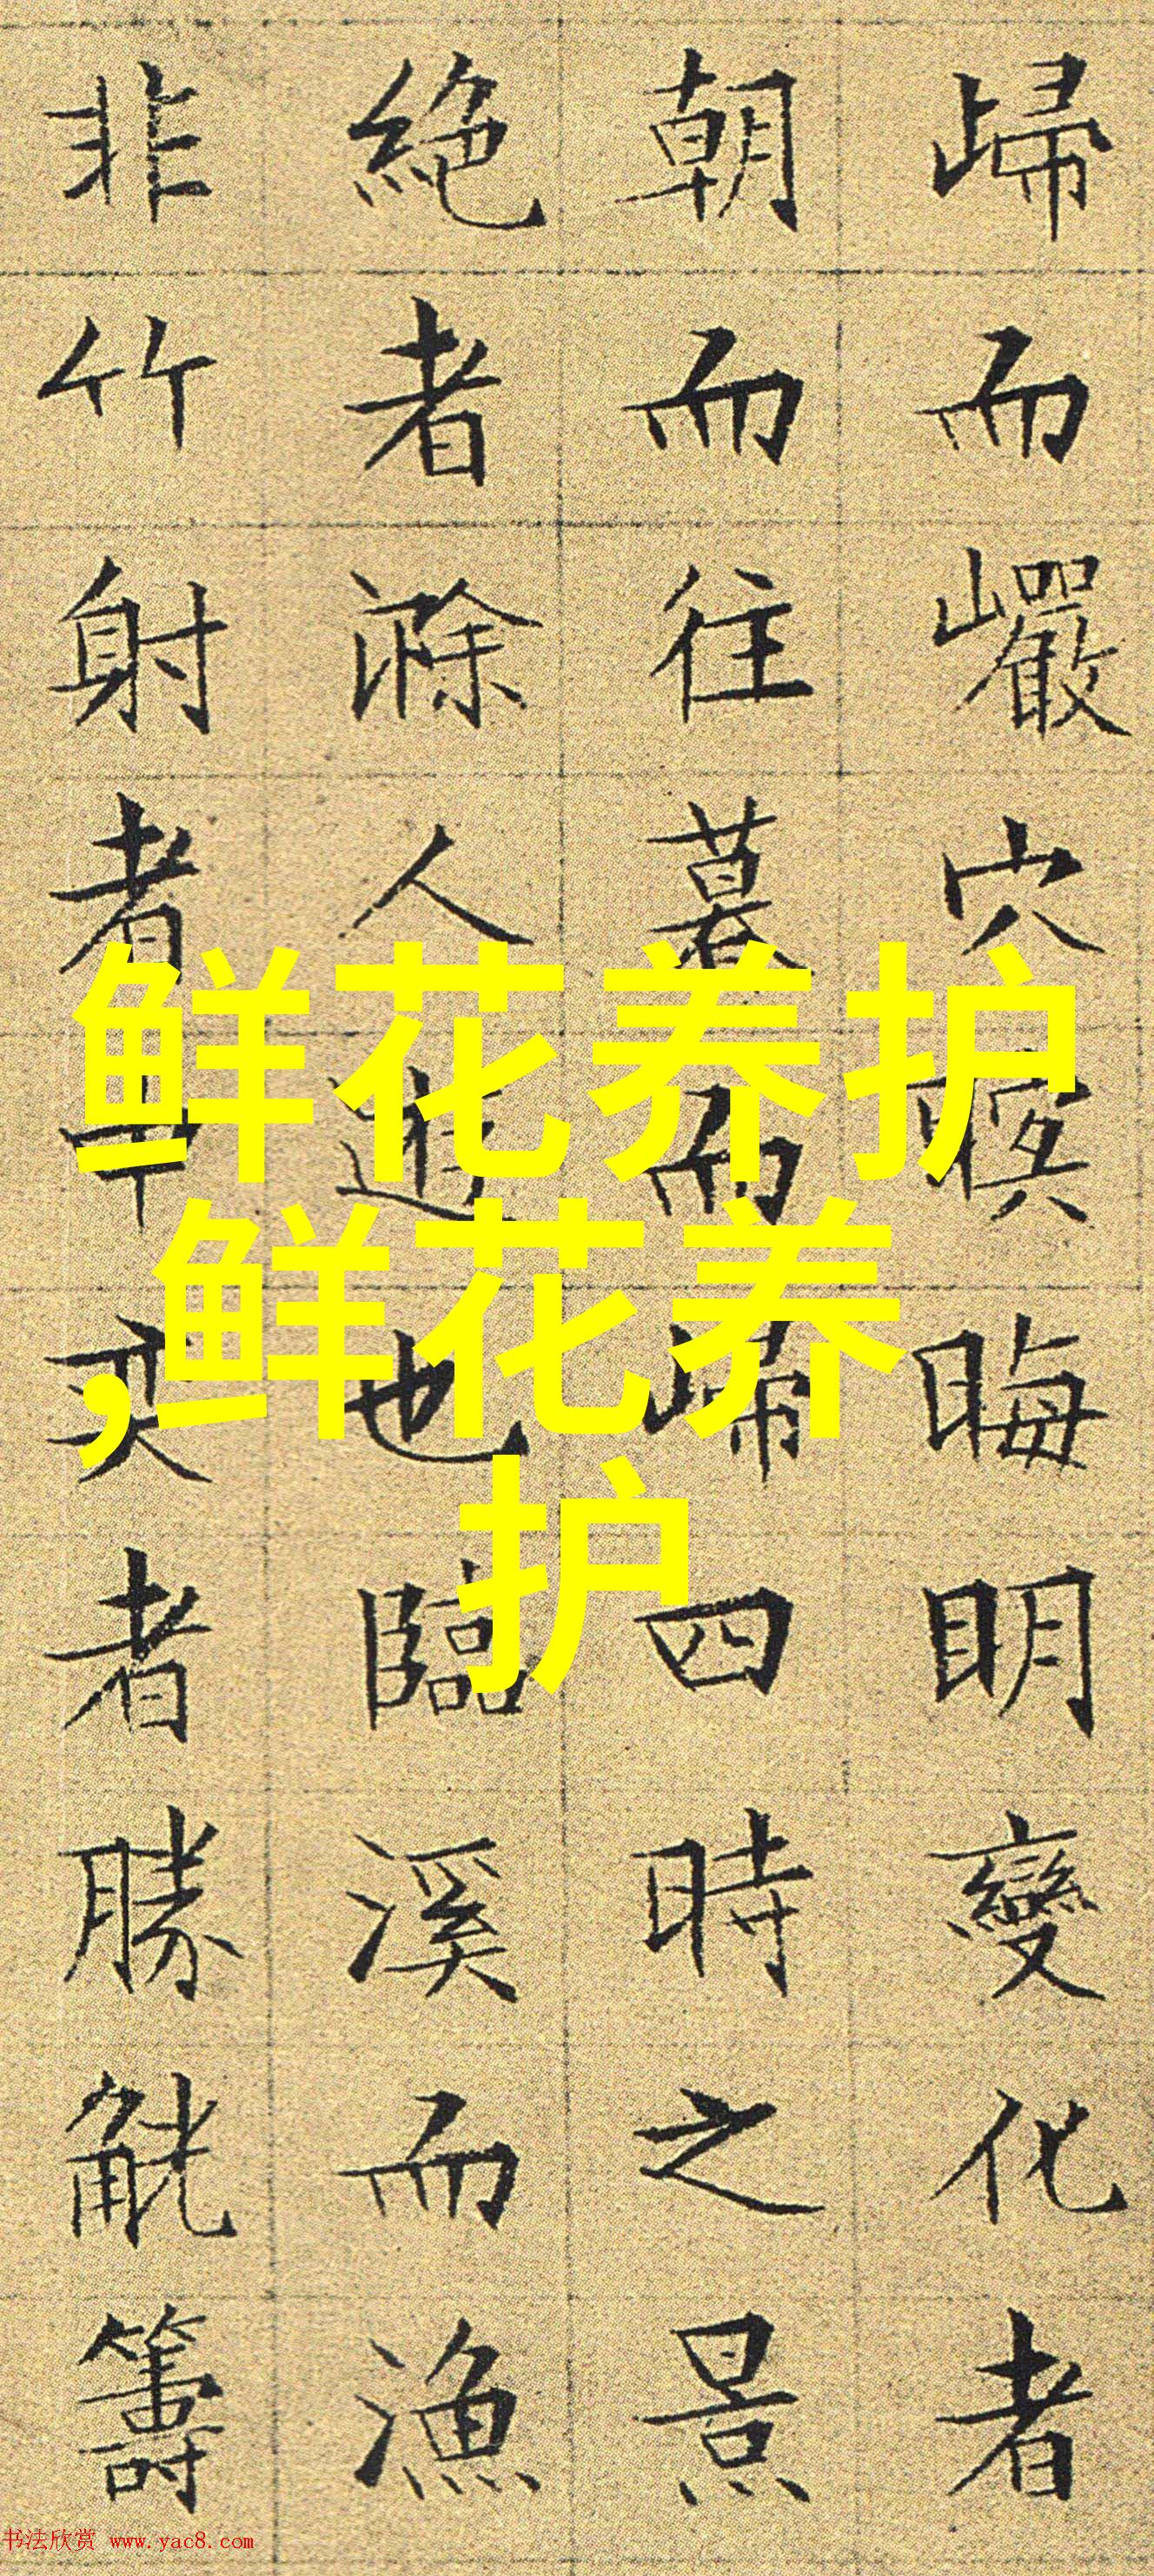 歸而巖穴暝晦明變化者
朝而往暮而歸四時之景
絶者滁人遊也臨溪而漁
非竹射者中奕者勝觥籌
鲜花养护
,鲜花养
护
书法欣赏 www.yac8.com